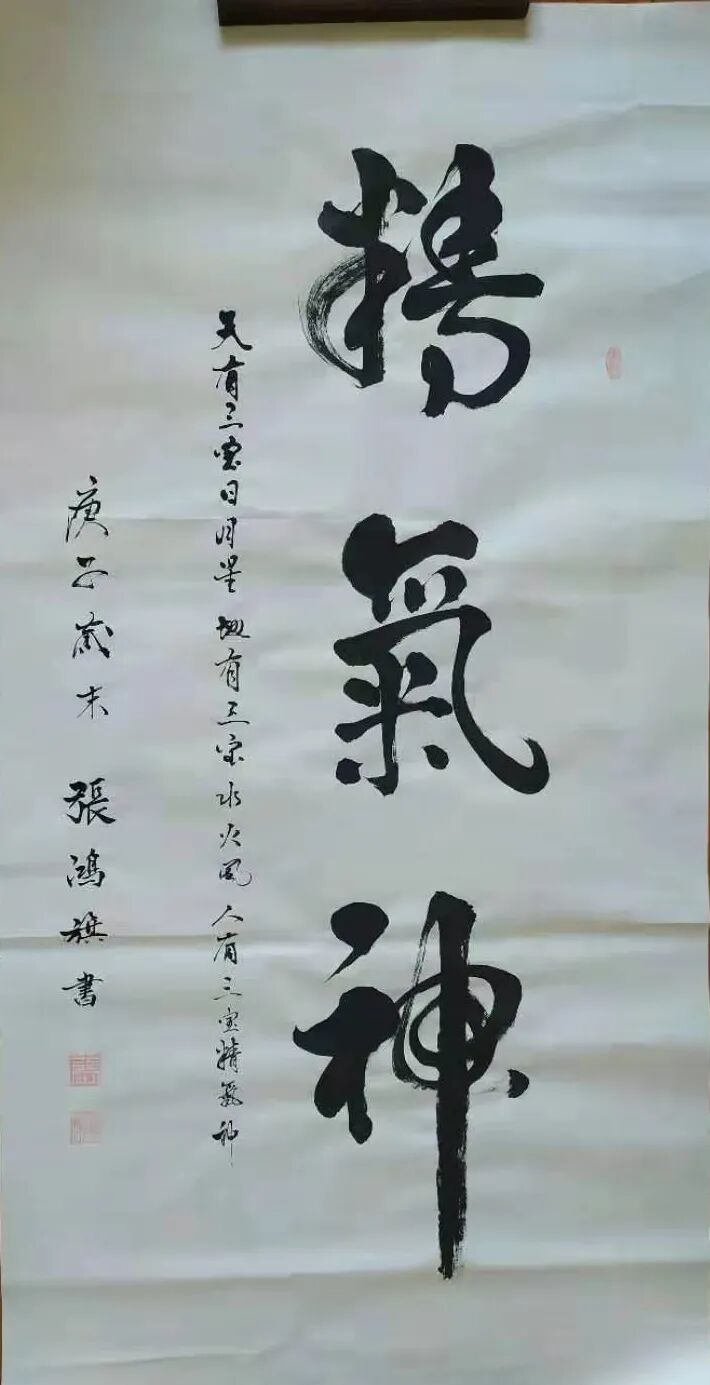 精氣神
天有三宝日月星地有三宝水火風人有三宝精氣神
庚子歲末張鴻旗書